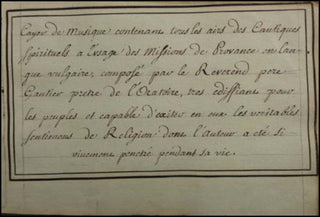 Cayer de Musique contenant tous les airs des Cantiques
spirituels a l'usage des Missions de Provance en lan-
gue vulgaire, composé par le Reverend pere
Gautier pretre de l'Oratoire, tres diffiant pour
les peuples et capable d'exiter en eux les veritables
sentimens de Religion dont l'Auteur a eté si
vivement penetré pendant sa vie.